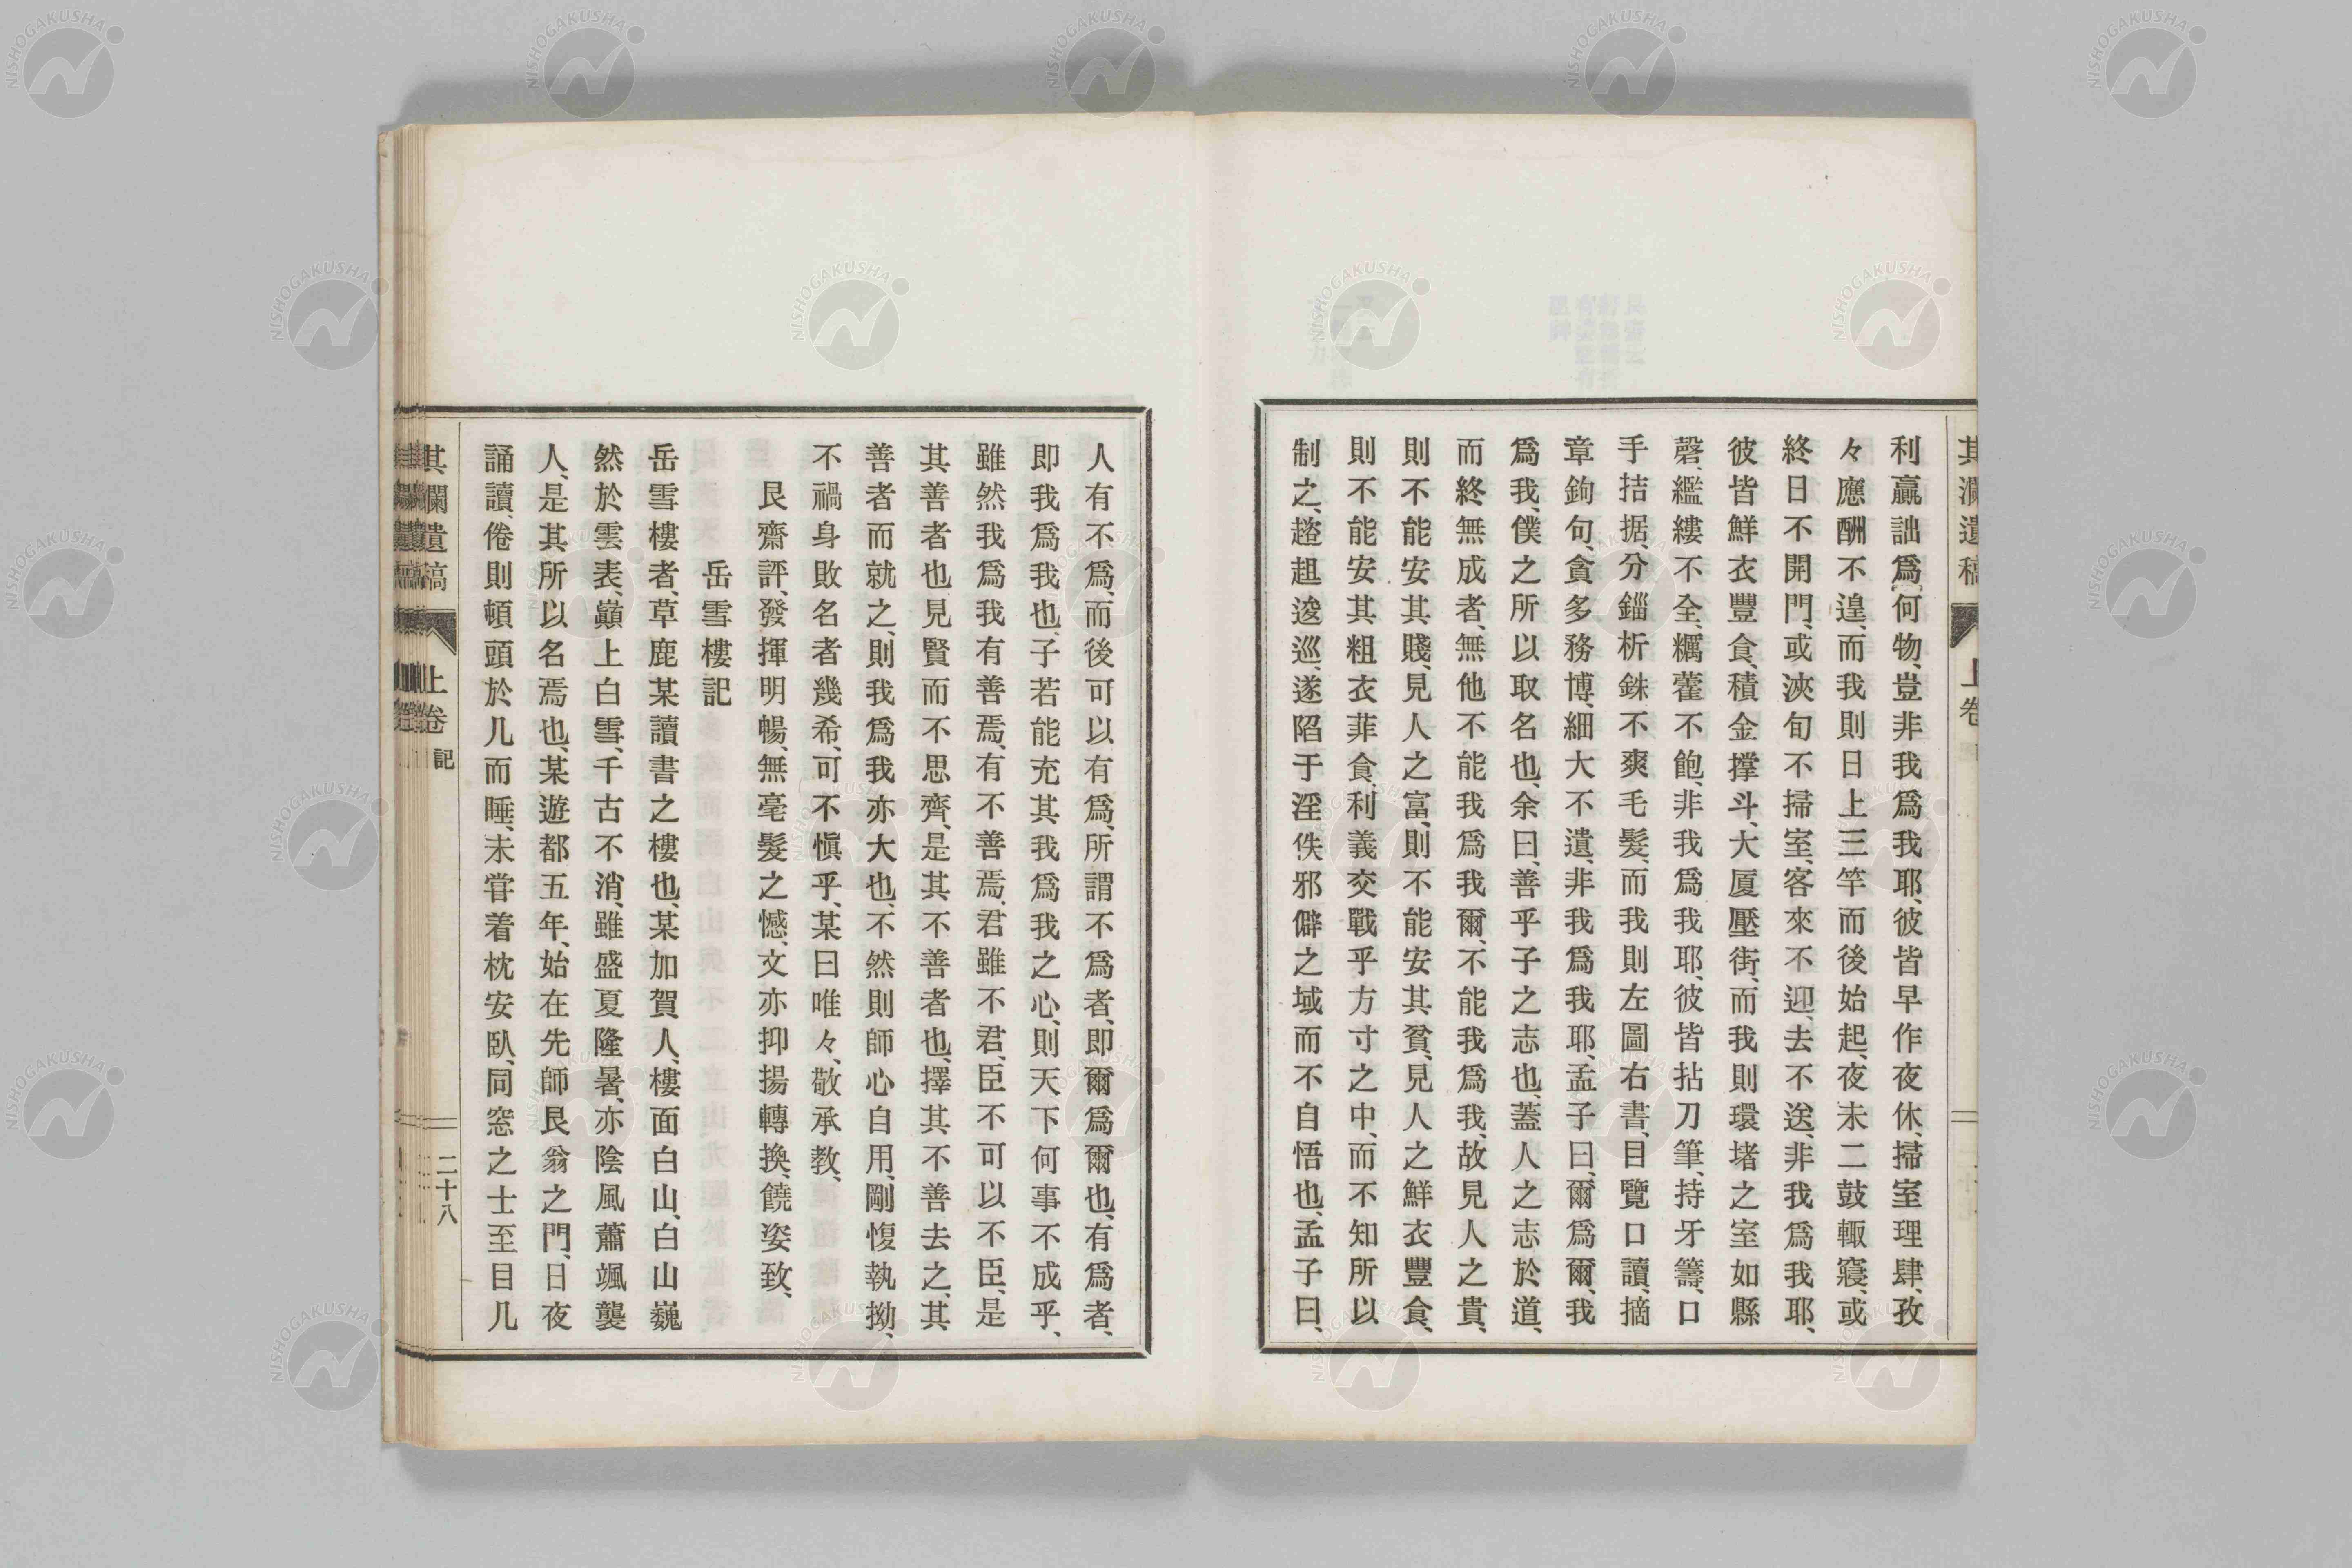 利贏詘爲何物、豈非我爲我耶、彼皆早作夜休、掃室理肆、孜
々應酬不遑、而我則日上三竿而後始起、夜未二鼓輙寢、或
終日不開門、或浹旬不掃室、客來不迎、去不送、非我爲我耶、
彼皆鮮衣豐食、積金撑斗、大厦壓街、而我則環堵之室如縣
磬、繿縷不全、糲藿不飽、非我爲我耶、彼皆拈刀筆、持牙籌、口
手拮据、分錙析銖、不爽毛髮、而我則左圖右書、目覽口讀、摘
章鉤句、貪多務博、細大不遺、非我爲我耶、孟子曰、爾爲爾、我
爲我、僕之所以取名也、余曰、善乎子之志也、蓋人之志於道、
而終無成者、無他不能我爲我爾、不能我爲我、故見人之貴、
則不能安其賤、見人之富、則不能安其貧、見人之鮮衣豐食、
則不能安其粗衣菲食、利義交戰乎方寸之中、而不知所以
制之、趦趄逡巡、遂陷于淫佚邪僻之域而不自悟也、孟子曰、
人有不爲、而後可以有爲、所謂不爲者、即爾爲爾也、有爲者、
即我爲我也、子若能充其我爲我之心、則天下何事不成乎、
雖然我爲我有善焉、有不善焉、君雖不君、臣不可以不臣、是
其善者也、見賢而不思齊、是其不善者也、擇其不善去之、其
善者而就之、則我爲我亦大也、不然則師心自用、剛愎執拗、
不禍身敗名者幾希、可不愼乎、某曰唯々、敬承敎、
艮齋評、發揮明暢、無毫髮之憾、文亦抑揚轉換、饒姿致、
岳雪樓記
岳雪樓者、草鹿某讀書之樓也、某加賀人、樓面白山、白山巍
然於雲表、巓上白雪、千古不消、雖盛夏隆暑、亦陰風蕭颯襲
人、是其所以名焉也、某遊都五年、始在先師艮翁之門、日夜
誦讀、倦則頓頭於几而睡、未甞着枕安臥、同窓之士至目几
其瀾遺稿 上卷 記 二十八